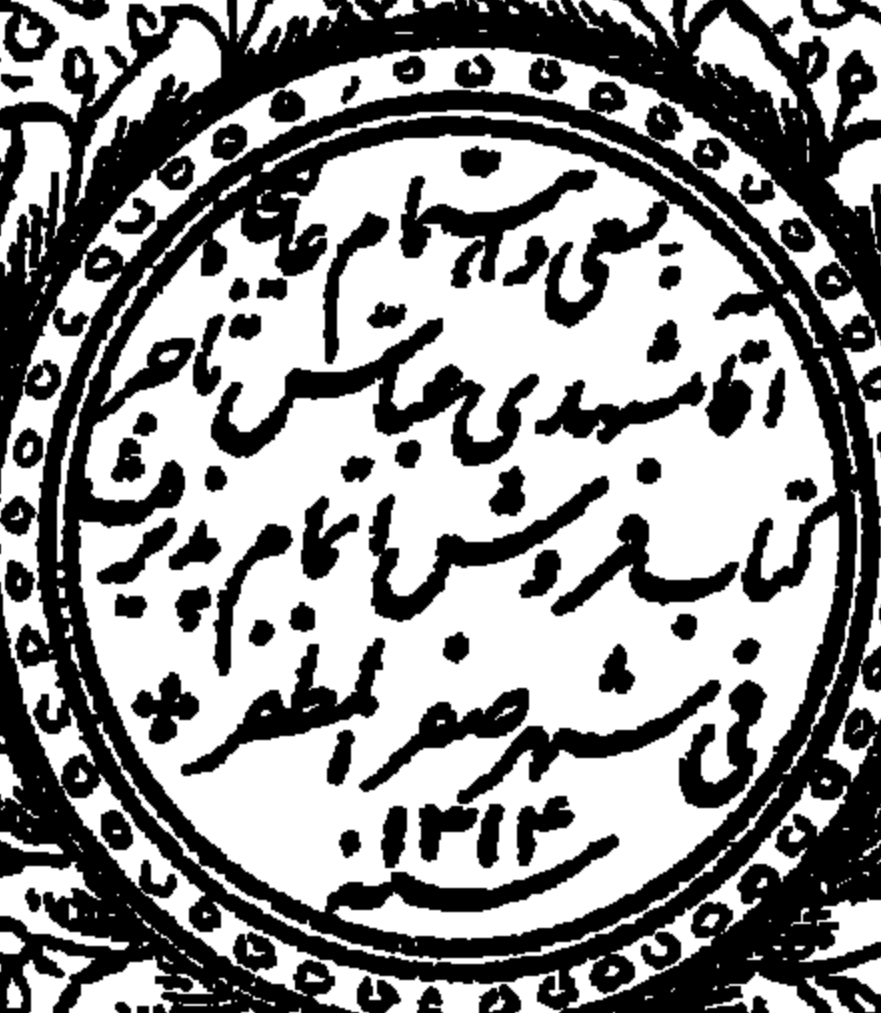 بسعی و اهتمام عالیقدر
آقا مشهدی عباس تاجر
کتابفروش اتمام پذیرفت
فی شهر صفر المظفر
سنه ۱۳۱۴